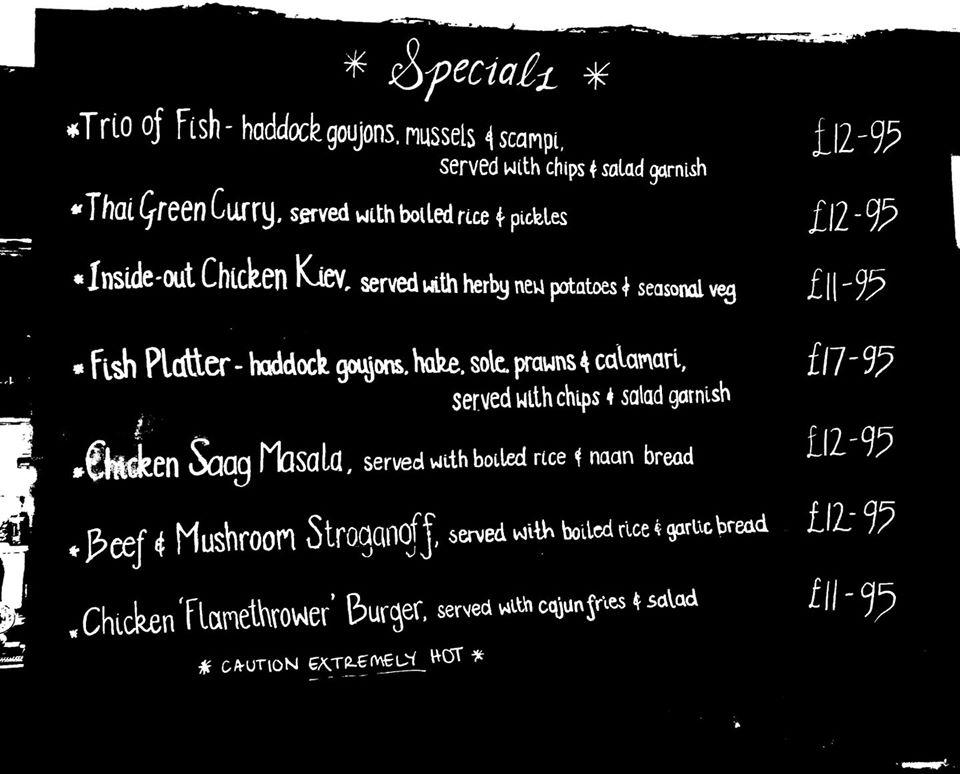 * Specials *
*Trio of Fish - haddock goujons, mussels & scampi, £12-95
served with chips & salad garnish
*Thai Green Curry, served with boiled rice & pickles £12-95
*Inside-out Chicken Kiev, served with herby new potatoes & seasonal veg £11-95
*Fish Platter - haddock goujons, hake, sole, prawns & calamari, £17-95
served with chips & salad garnish
*Chicken Saag Masala, served with boiled rice & naan bread £12-95
*Beef & Mushroom Stroganoff, served with boiled rice & garlic bread £12-95
*Chicken 'Flamethrower' Burger, served with cajun fries & salad £11-95
* CAUTION EXTREMELY HOT *